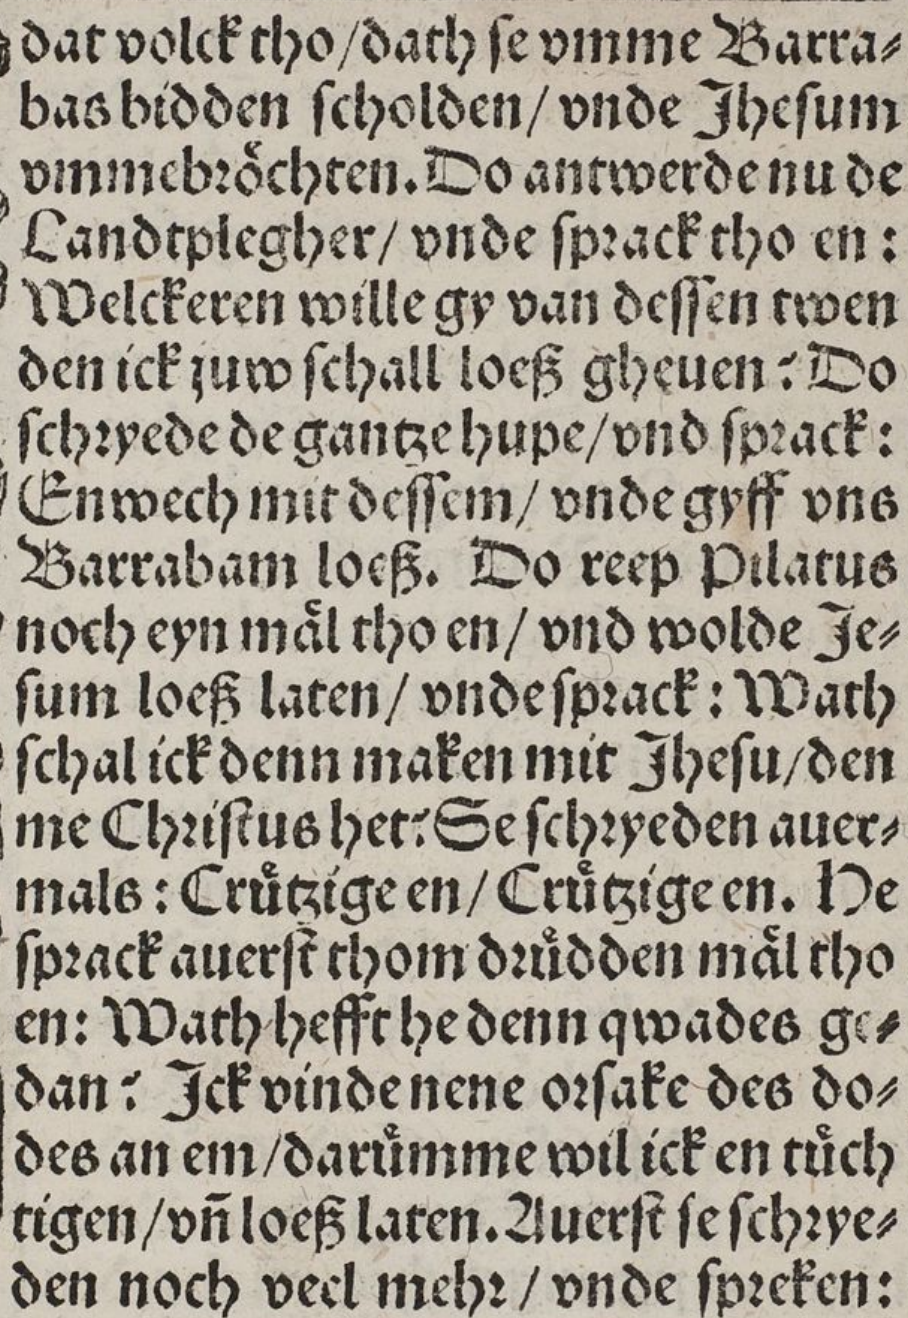 dat volck tho/dath se vmme Barra⸗
bas bidden scholden/ vnde Jhesum
vmmebroͤchten. Do antwerde nu de
Landtplegher/ vnde sprack tho en:
Welckeren wille gy van dessen twen
den ick juw schall loeß gheuen? Do
schryede de gantze hupe/vnd sprack:
Enwech mit dessem/ vnde gyff vns
Barrabam loeß. Do reep Pilatus
noch eyn maͤl tho en/ vnd wolde Je⸗
sum loeß laten/ vnde sprack: Wath
schal ick denn maken mit Jhesu/den
me Christus het? Se schryeden auer⸗
mals: Cruͤtzige en/ Cruͤtzige en. He
sprack auerst thom druͤdden maͤl tho
en: Wath hefft he denn qwades ge⸗
dan? Jck vinde nene orsake des do⸗
des an em/daruͤmme wil ick en tuͤch
tigen/vn̄ loeß laten. Auerst se schrye⸗
den noch veel mehr/ vnde spreken: